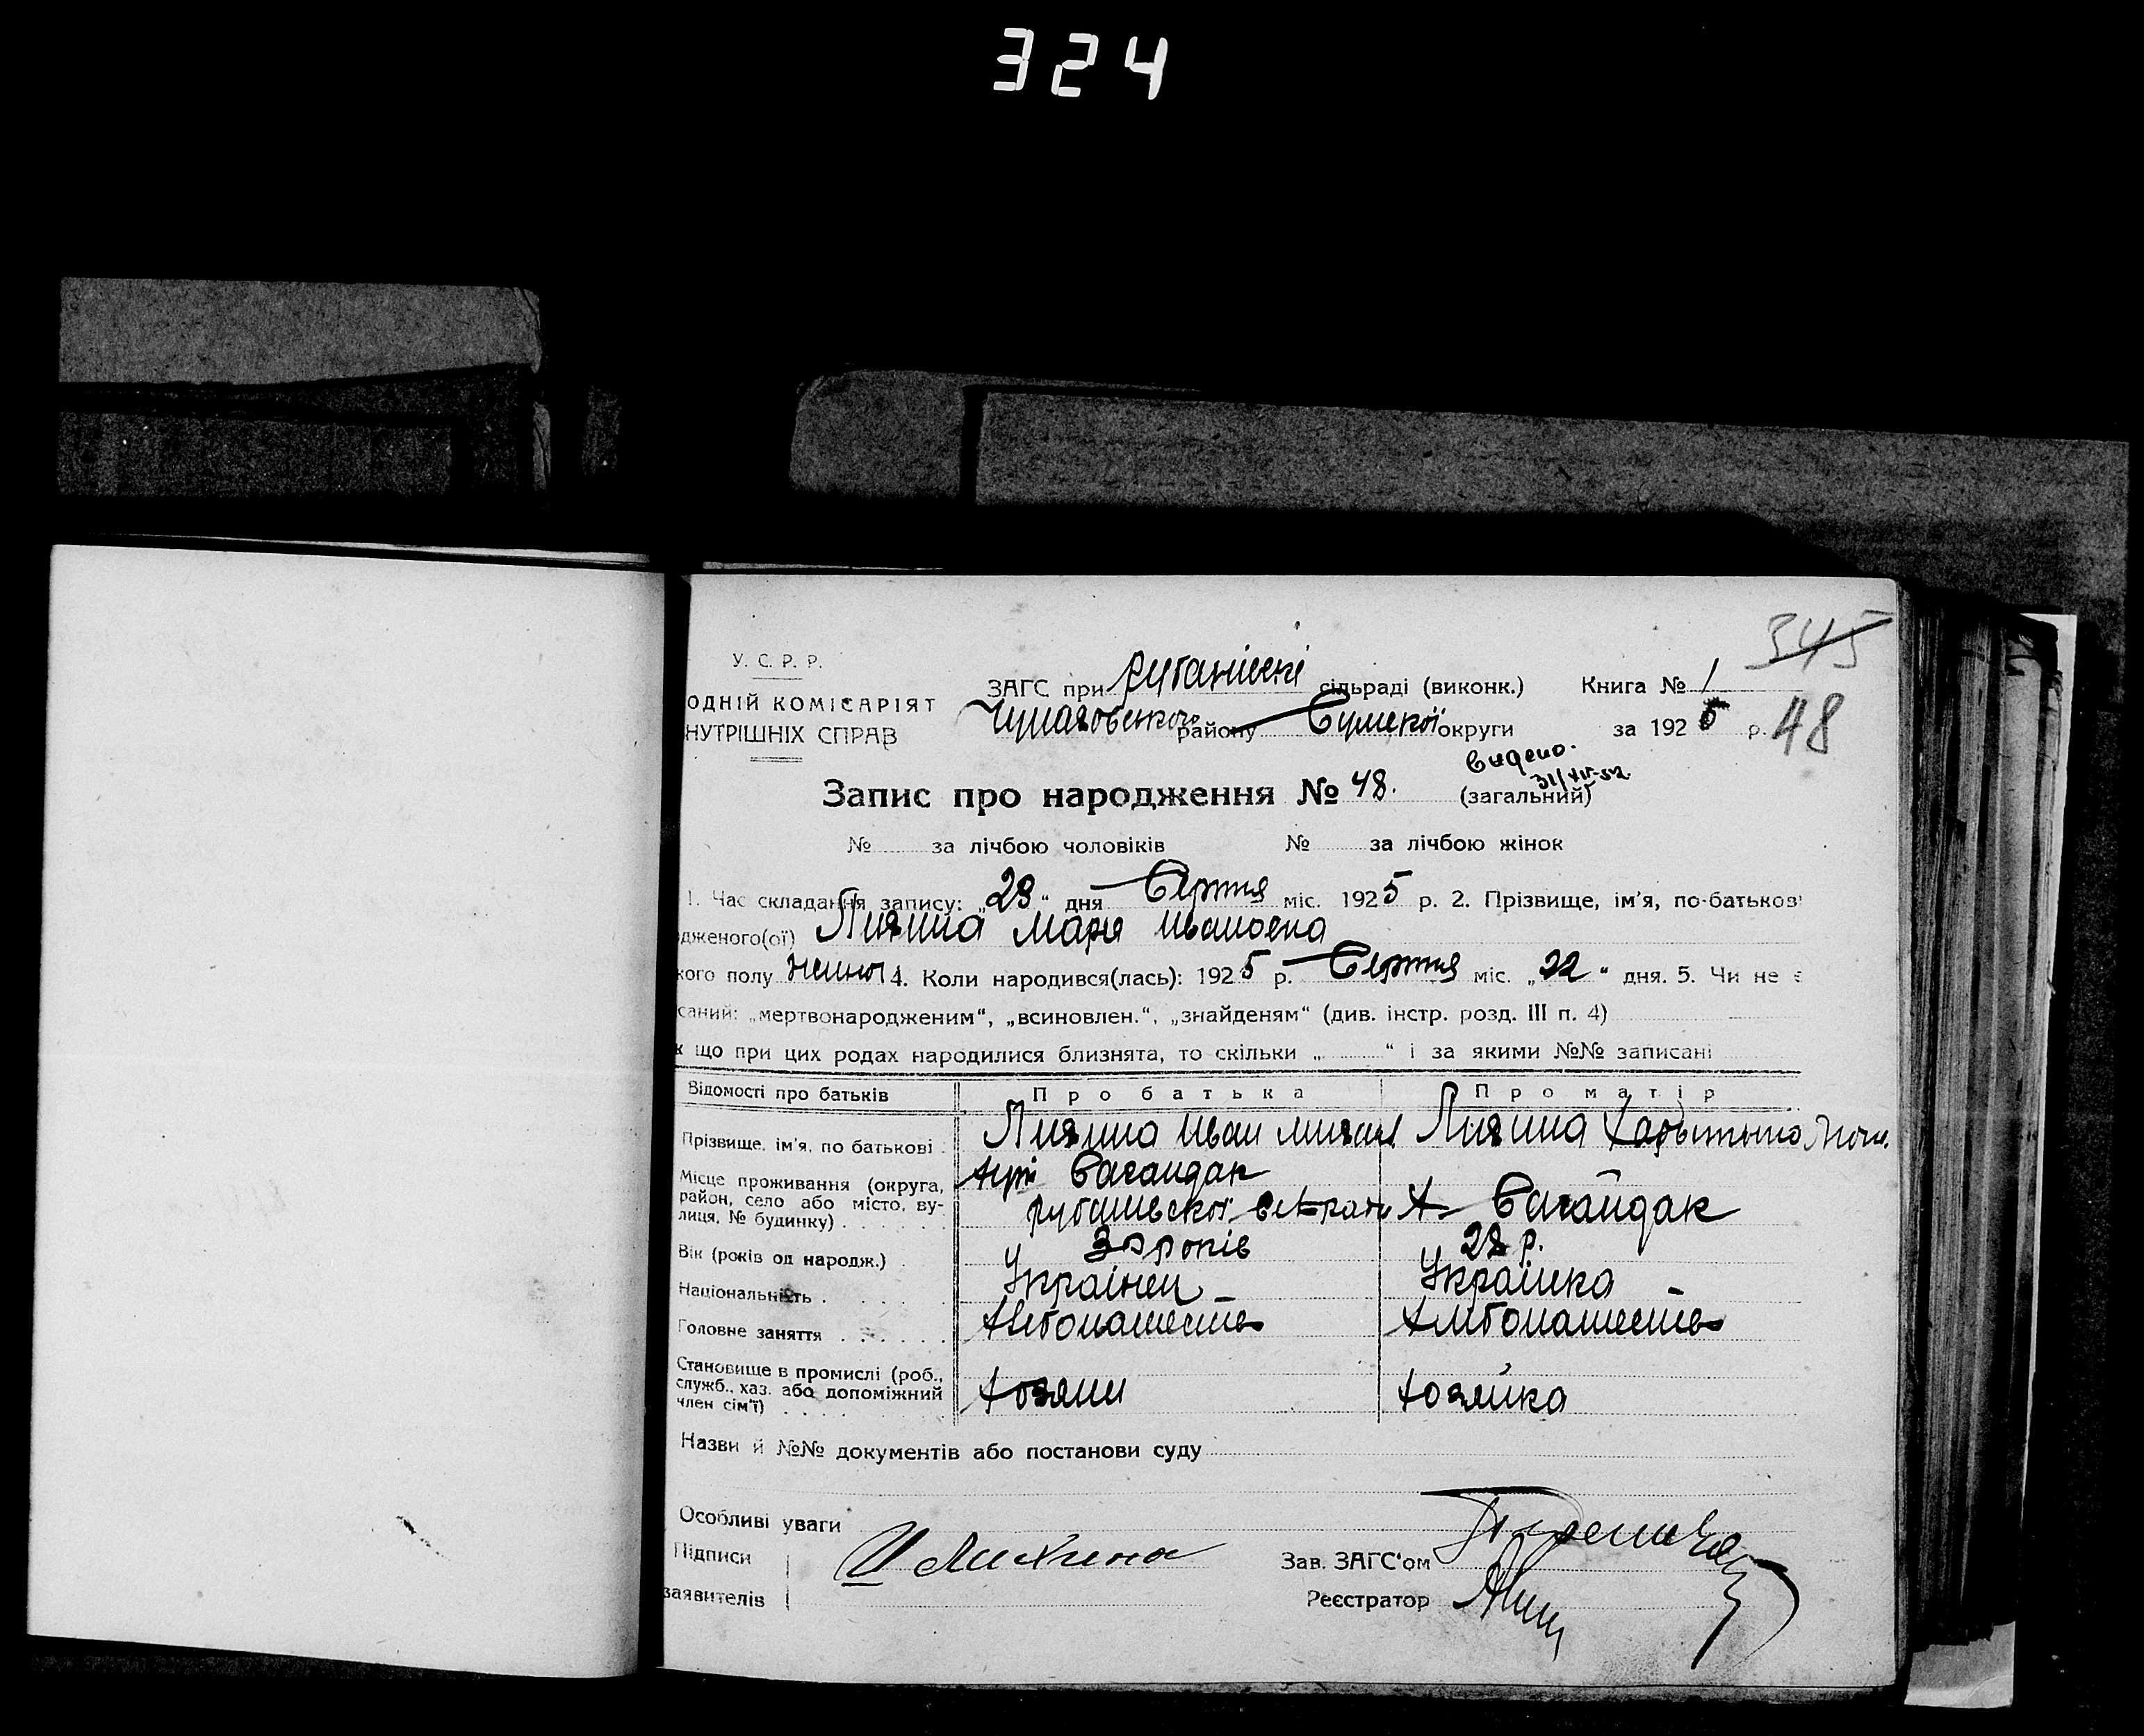 324
345
У. С. Р. Р.
ЗАГС при сільраді (виконк.) Книга № 1
ОДНІЙ КОМІСАРІЯТ
району Сумскої округи за 1925 р. 48
НУТРІШНІХ СПРАВ
Видено.
31/XII-52
Запис про народження № 48. (загальний)
№ за лічбою чоловіків № за лічбою жінок
1. Час складання запису: „29“ дня Серпня міс. 1925 р. 2. Прізвище, ім'я, по-батькові
дженого(ої) Лихина Мария Ивановна
кого полу 4. Коли народився(лась): 1925 р. Серпня міс. „22“ дня. 5. Чи не є
саний: „мертвонародженим“, „всиновлен.“, „знайденям“ (див. інстр. розд. III п. 4)
к що при цих родах народилися близнята, то скільки „ “ і за якими №№ записані
Відомості про батьків Про батька Про матір
Прізвище, ім'я, по батькові Лихина Иван Лихина
Місце проживання (округа, район, село або місто, вулиця, № будинку) Хутір Сагайдак Х. Сагайдак
Вік (років од народж.) років 28 р.
Національність Українец Українка
Головне заняття Хлібопашество Хлібопашество
Становище в промислі (роб., служб., хаз. або допоміжний член сім'ї) Хозяин Хозяйка
Назви й №№ документів або постанови суду
Особливі уваги
Підписи И Лихина Зав. ЗАГС'ом
заявителів Реєстратор